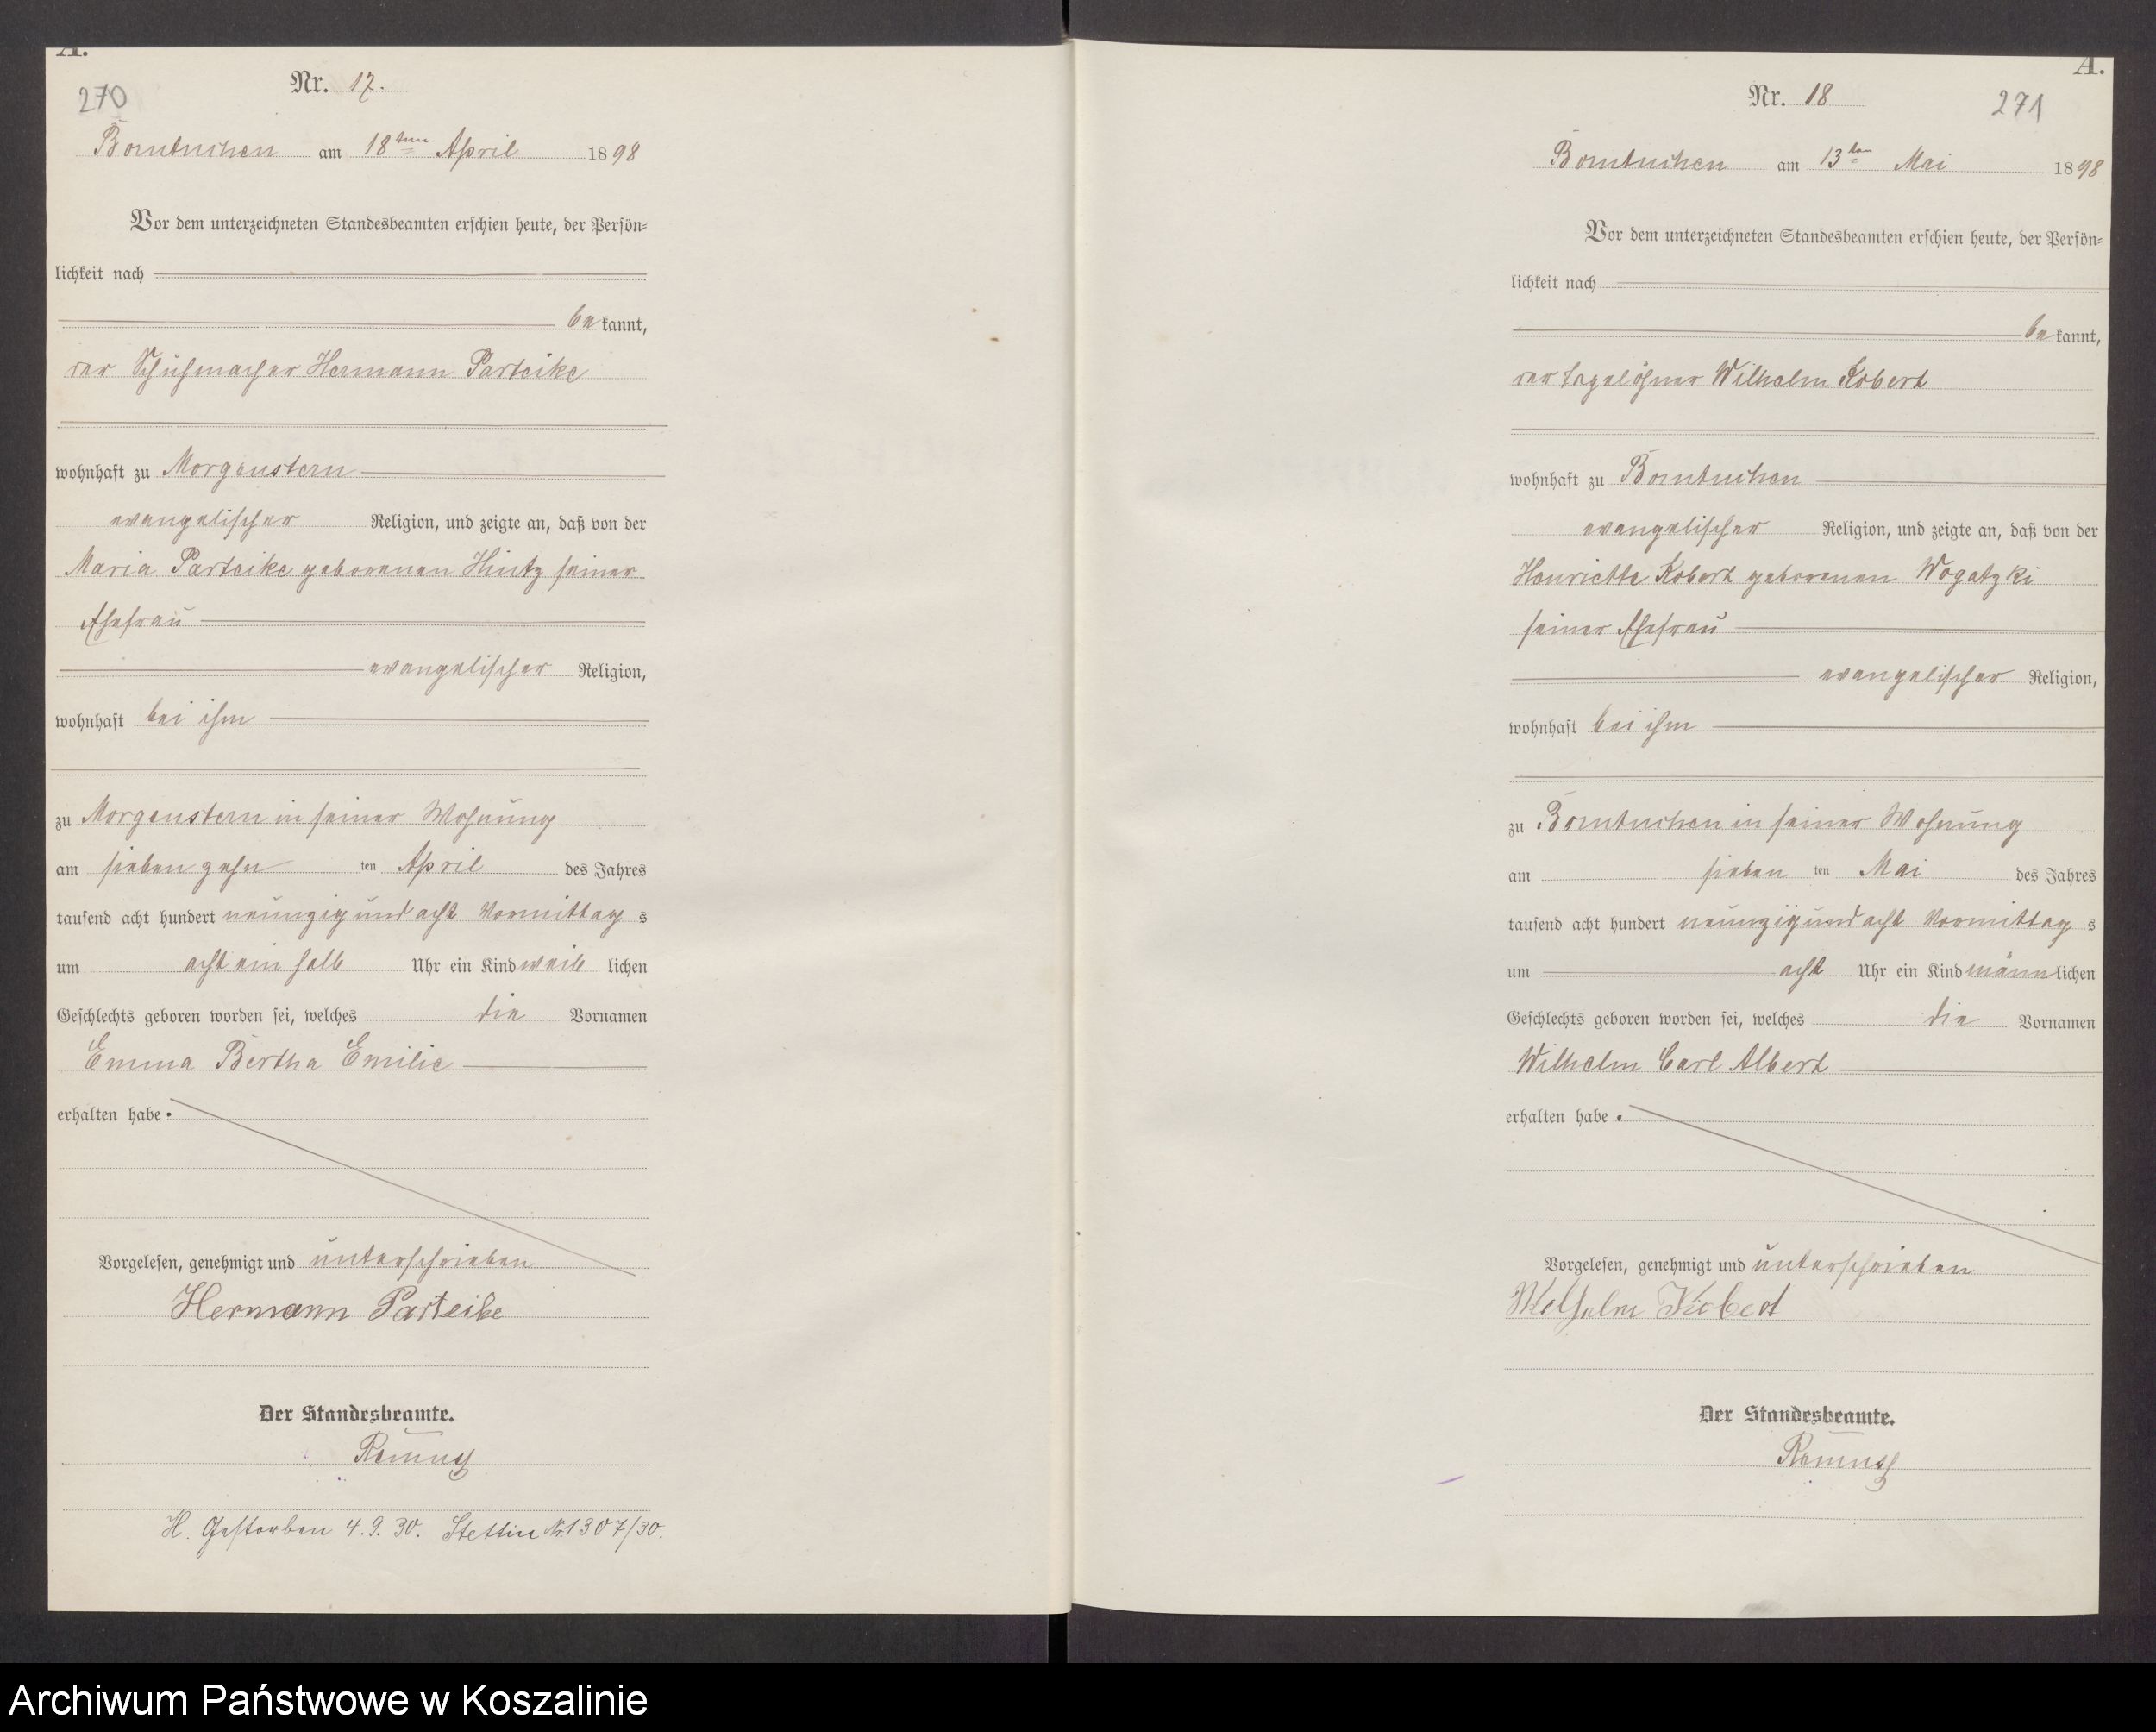 A.
270
Nr. 17.
Borntuchen am 18ten April 1898
Vor dem unterzeichneten Standesbeamten erschien heute, der Persön-
lichkeit nach
bekannt,
der Schuhmacher Hermann Parteike
wohnhaft zu Morgenstern
evangelischer Religion, und zeigte an, daß von der
Maria Parteike geborenen Hintz seiner
Ehefrau
evangelischer Religion,
wohnhaft bei ihm
zu Morgenstern in seiner Wohnung
am siebenzehn ten April des Jahres
tausend acht hundert neunzig und acht Vormittags
um acht ein halb Uhr ein Kind weiblichen
Geschlechts geboren worden sei, welches die Vornamen
Emma Bertha Emilie
erhalten habe.
Vorgelesen, genehmigt und unterschrieben
Hermann Parteike
Der Standesbeamte.
H. Gestorben 4.9.30. Stettin Nr. 1307/30.
A.
271
Nr. 18
Borntuchen am 13ten Mai 1898
Vor dem unterzeichneten Standesbeamten erschien heute, der Persön-
lichkeit nach
bekannt,
der Tagelöhner Wilhelm Kobert
wohnhaft zu Borntuchen
evangelischer Religion, und zeigte an, daß von der
Henriette Kobert geborenen Wogatzki
seiner Ehefrau
evangelischer Religion,
wohnhaft bei ihm
zu Borntuchen in seiner Wohnung
am sieben ten Mai des Jahres
tausend acht hundert neunzig und acht Vormittags
um acht Uhr ein Kind männlichen
Geschlechts geboren worden sei, welches die Vornamen
Wilhelm Carl Albert
erhalten habe.
Vorgelesen, genehmigt und unterschrieben
Wilhelm Kobert
Der Standesbeamte.
Archiwum Państwowe w Koszalinie